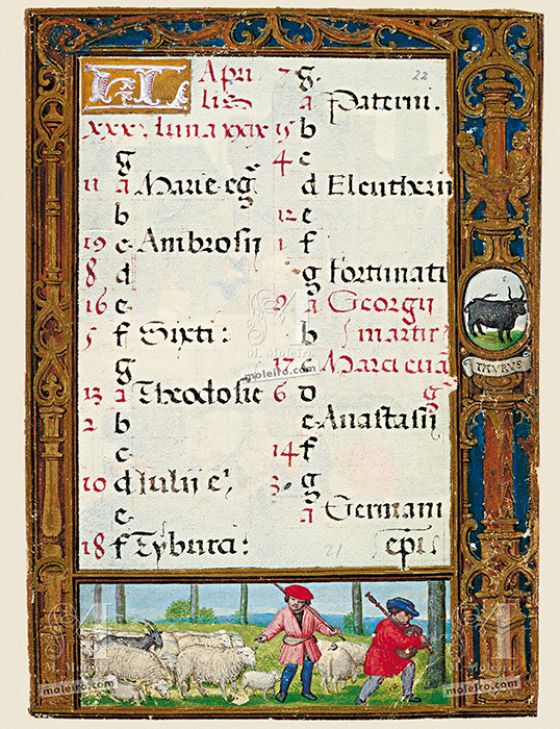 KL Apri
lis
xxx. luna xxix
g
11 a Marie eg
b
19 c Ambrosij
8 d
16 e
5 f Sixti:
g
13 a Theodosie
2 b
c
10 d Iulii e
e
18 f Tyburci:
7 g
a Paterni.
15 b
4 c
d Eleutherii
12 e
1 f
g Fortunati
9 a Georgij
b martir
17 c Marci euā
6 d g
e Anastasij
14 f
3 g
a Germani
epi
22
21
TAVRVS
M. Moleiro
moleiro.com
M. Moleiro
moleiro.com
moleiro.com